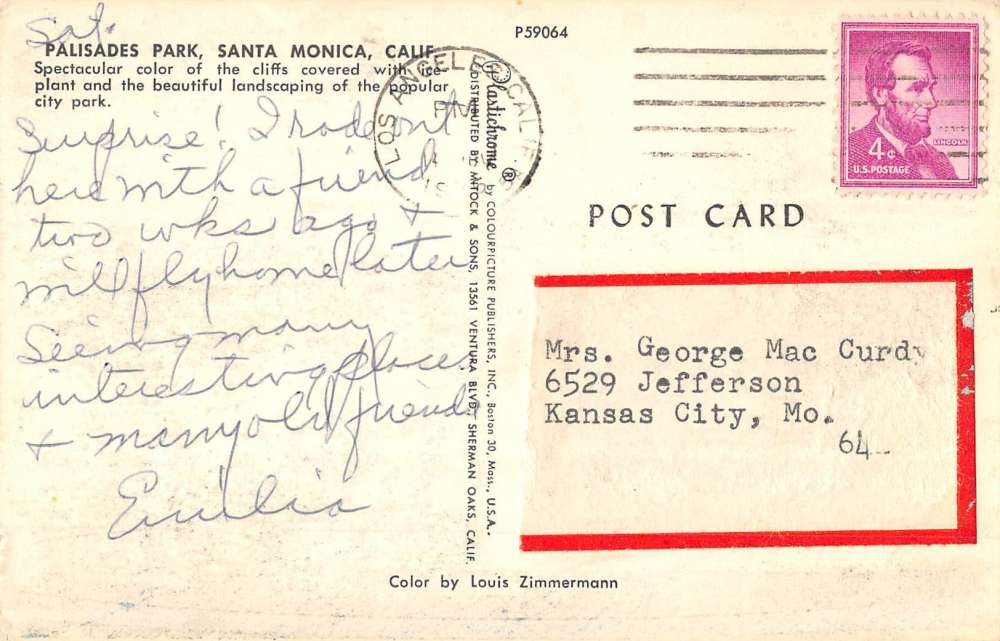 Sat.
PALISADES PARK, SANTA MONICA, CALIF.
Spectacular color of the cliffs covered with ice
plant and the beautiful landscaping of the popular
city park.
Surprise! I rode out
here with a friend
two wks ago +
will fly home later
Seeing many
interesting places
+ many old friends
Emilia
P59064
Plastichrome ® by COLOURPICTURE PUBLISHERS, INC., Boston 30, Mass., U.S.A.
DISTRIBUTED BY MITOCK & SONS, 13561 VENTURA BLVD., SHERMAN OAKS, CALIF.
LOS ANGELES, CALIF
PM
4¢
LINCOLN
U.S. POSTAGE
POST CARD
Mrs. George Mac Curdy
6529 Jefferson
Kansas City, Mo.
64
Color by Louis Zimmermann